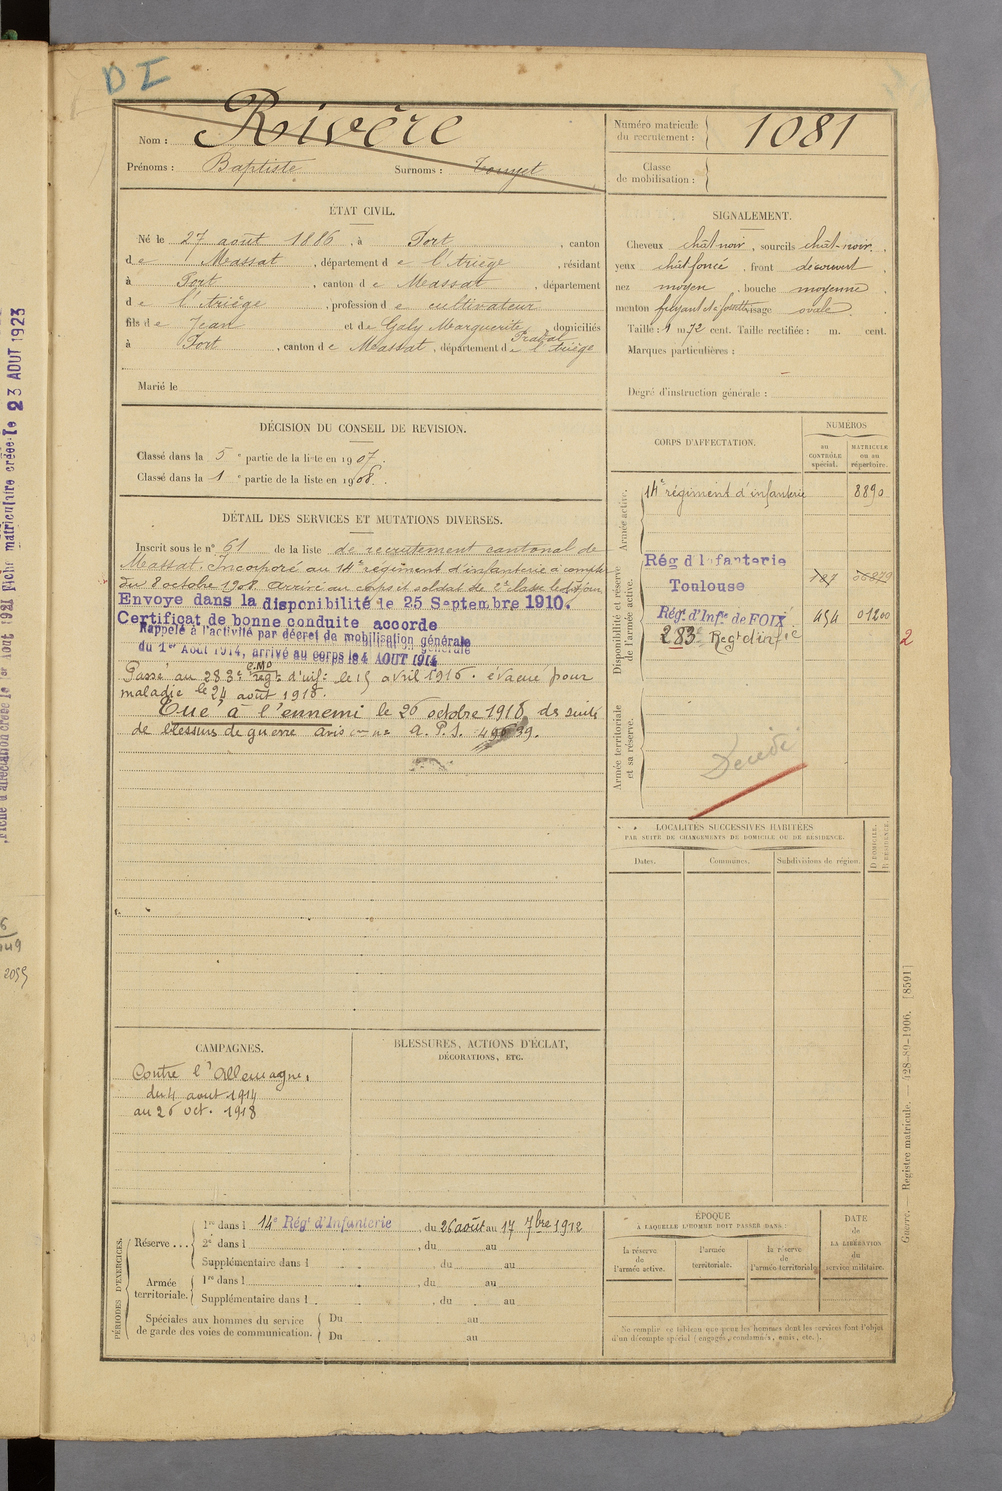 DI
Nom : Rivère
Prénoms : Baptiste Surnoms : Touyet
Numéro matricule du recrutement : 1081
Classe de mobilisation :
ÉTAT CIVIL.
Né le 27 août 1886, à Port, canton
de Massat, département de l'Ariège, résidant
à Port, canton de Massat, département
de l'Ariège, profession de cultivateur
fils de Jean et de Galy Marguerite, domiciliés
à Port, canton de Massat, département de l'Ariège
Marié le
SIGNALEMENT.
Cheveux chât-noir, sourcils chât-noir.
yeux chât foncé, front découvert
nez moyen, bouche moyenne
menton fuyant et visage ovale
Taille : 1 m 72 cent. Taille rectifiée : m. cent.
Marques particulières :
Degré d'instruction générale :
DÉCISION DU CONSEIL DE REVISION.
Classé dans la 5e partie de la liste en 1907.
Classé dans la 1e partie de la liste en 1908.
DÉTAIL DES SERVICES ET MUTATIONS DIVERSES.
Inscrit sous le n° 61 de la liste de recrutement cantonal de
Massat. Incorporé au 14e régiment d'infanterie à compter
du 8 octobre 1908. Arrivé au corps et soldat de 2e classe ledit jour
Envoyé dans la disponibilité le 25 Septembre 1910.
Certificat de bonne conduite accordé
Rappelé à l'activité par décret de mobilisation générale
du 1er Août 1914, arrivé au corps le 4 AOUT 1914
Passé au 283e régt d'inf: le 15 avril 1916. évacué pour
maladie le 24 août 1918.
Tué à l'ennemi le 26 octobre 1918 des suites
de blessures de guerre avis
CORPS D'AFFECTATION.
NUMÉROS
au CONTRÔLE spécial.
MATRICULE ou au répertoire.
Armée active.
14e régiment d'infanterie 8890
Disponibilité et réserve de l'armée active.
Rég d'Infanterie
Toulouse
Rég. d'Infie de FOIX 454 01200
283e Regt d'infie
2
Armée territoriale et sa réserve.
Décédé
LOCALITÉS SUCCESSIVES HABITÉES
PAR SUITE DE CHANGEMENTS DE DOMICILE OU DE RÉSIDENCE.
Dates. Communes. Subdivisions de région. D DOMICILE. R RÉSIDENCE.
CAMPAGNES.
Contre l'Allemagne,
du 4 août 1914
au 26 oct. 1918
BLESSURES, ACTIONS D'ÉCLAT,
DÉCORATIONS, ETC.
PÉRIODES D'EXERCICES.
Réserve ... 1re dans l 14e Régt d'Infanterie, du 26 août au 17 7bre 1912
2e dans l , du au
Supplémentaire dans l , du au
Armée territoriale. 1re dans l , du au
Supplémentaire dans l , du au
Spéciales aux hommes du service de garde des voies de communication. Du au
Du au
ÉPOQUE
À LAQUELLE L'HOMME DOIT PASSER DANS :
la réserve de l'armée active.
l'armée territoriale.
la réserve de l'armée territoriale.
DATE de LA LIBÉRATION du service militaire.
Ne remplir ce tableau que pour les hommes dont les services font l'objet
d'un décompte spécial (engagés, condamnés, omis, etc.).
Guerre. — Registre matricule. — 428-89-1906. [8591]
Fiche matriculaire créée le 23 AOUT 1923